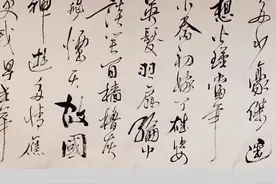 多少豪傑遙
想公瑾當年
小喬初嫁了雄姿
英發羽扇綸巾
談笑間檣櫓灰
飛煙滅故國
神遊多情應
我早生華